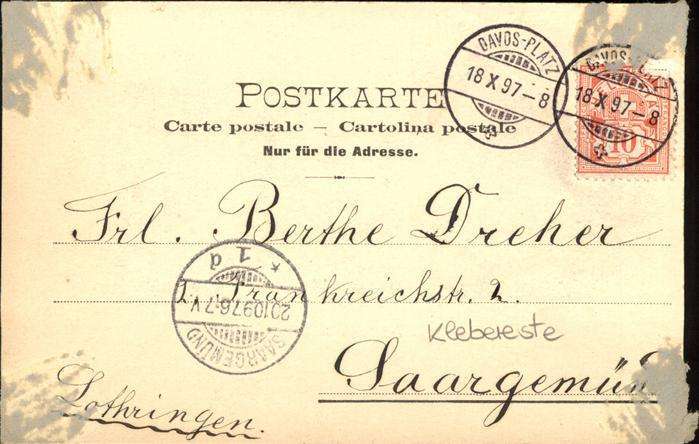 POSTKARTE
Carte postale — Cartolina postale
Nur für die Adresse.
DAVOS-PLATZ
18 X 97–8
DAVOS-PLATZ
18 X 97–8
10
Frl. Berthe Dreher
2. Frankreichstr. 2.
Saargemü
Lothringen.
Klebereste
SAARGEMÜND
* 1 d